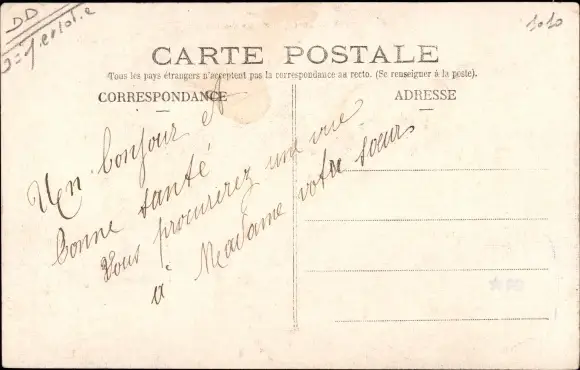 DD
1010
CARTE POSTALE
Tous les pays étrangers n'acceptent pas la correspondance au recto. (Se renseigner à la poste).
CORRESPONDANCE
ADRESSE
Un bonjour et
bonne santé
Vous procurerez une vue
a Madame votre sœur